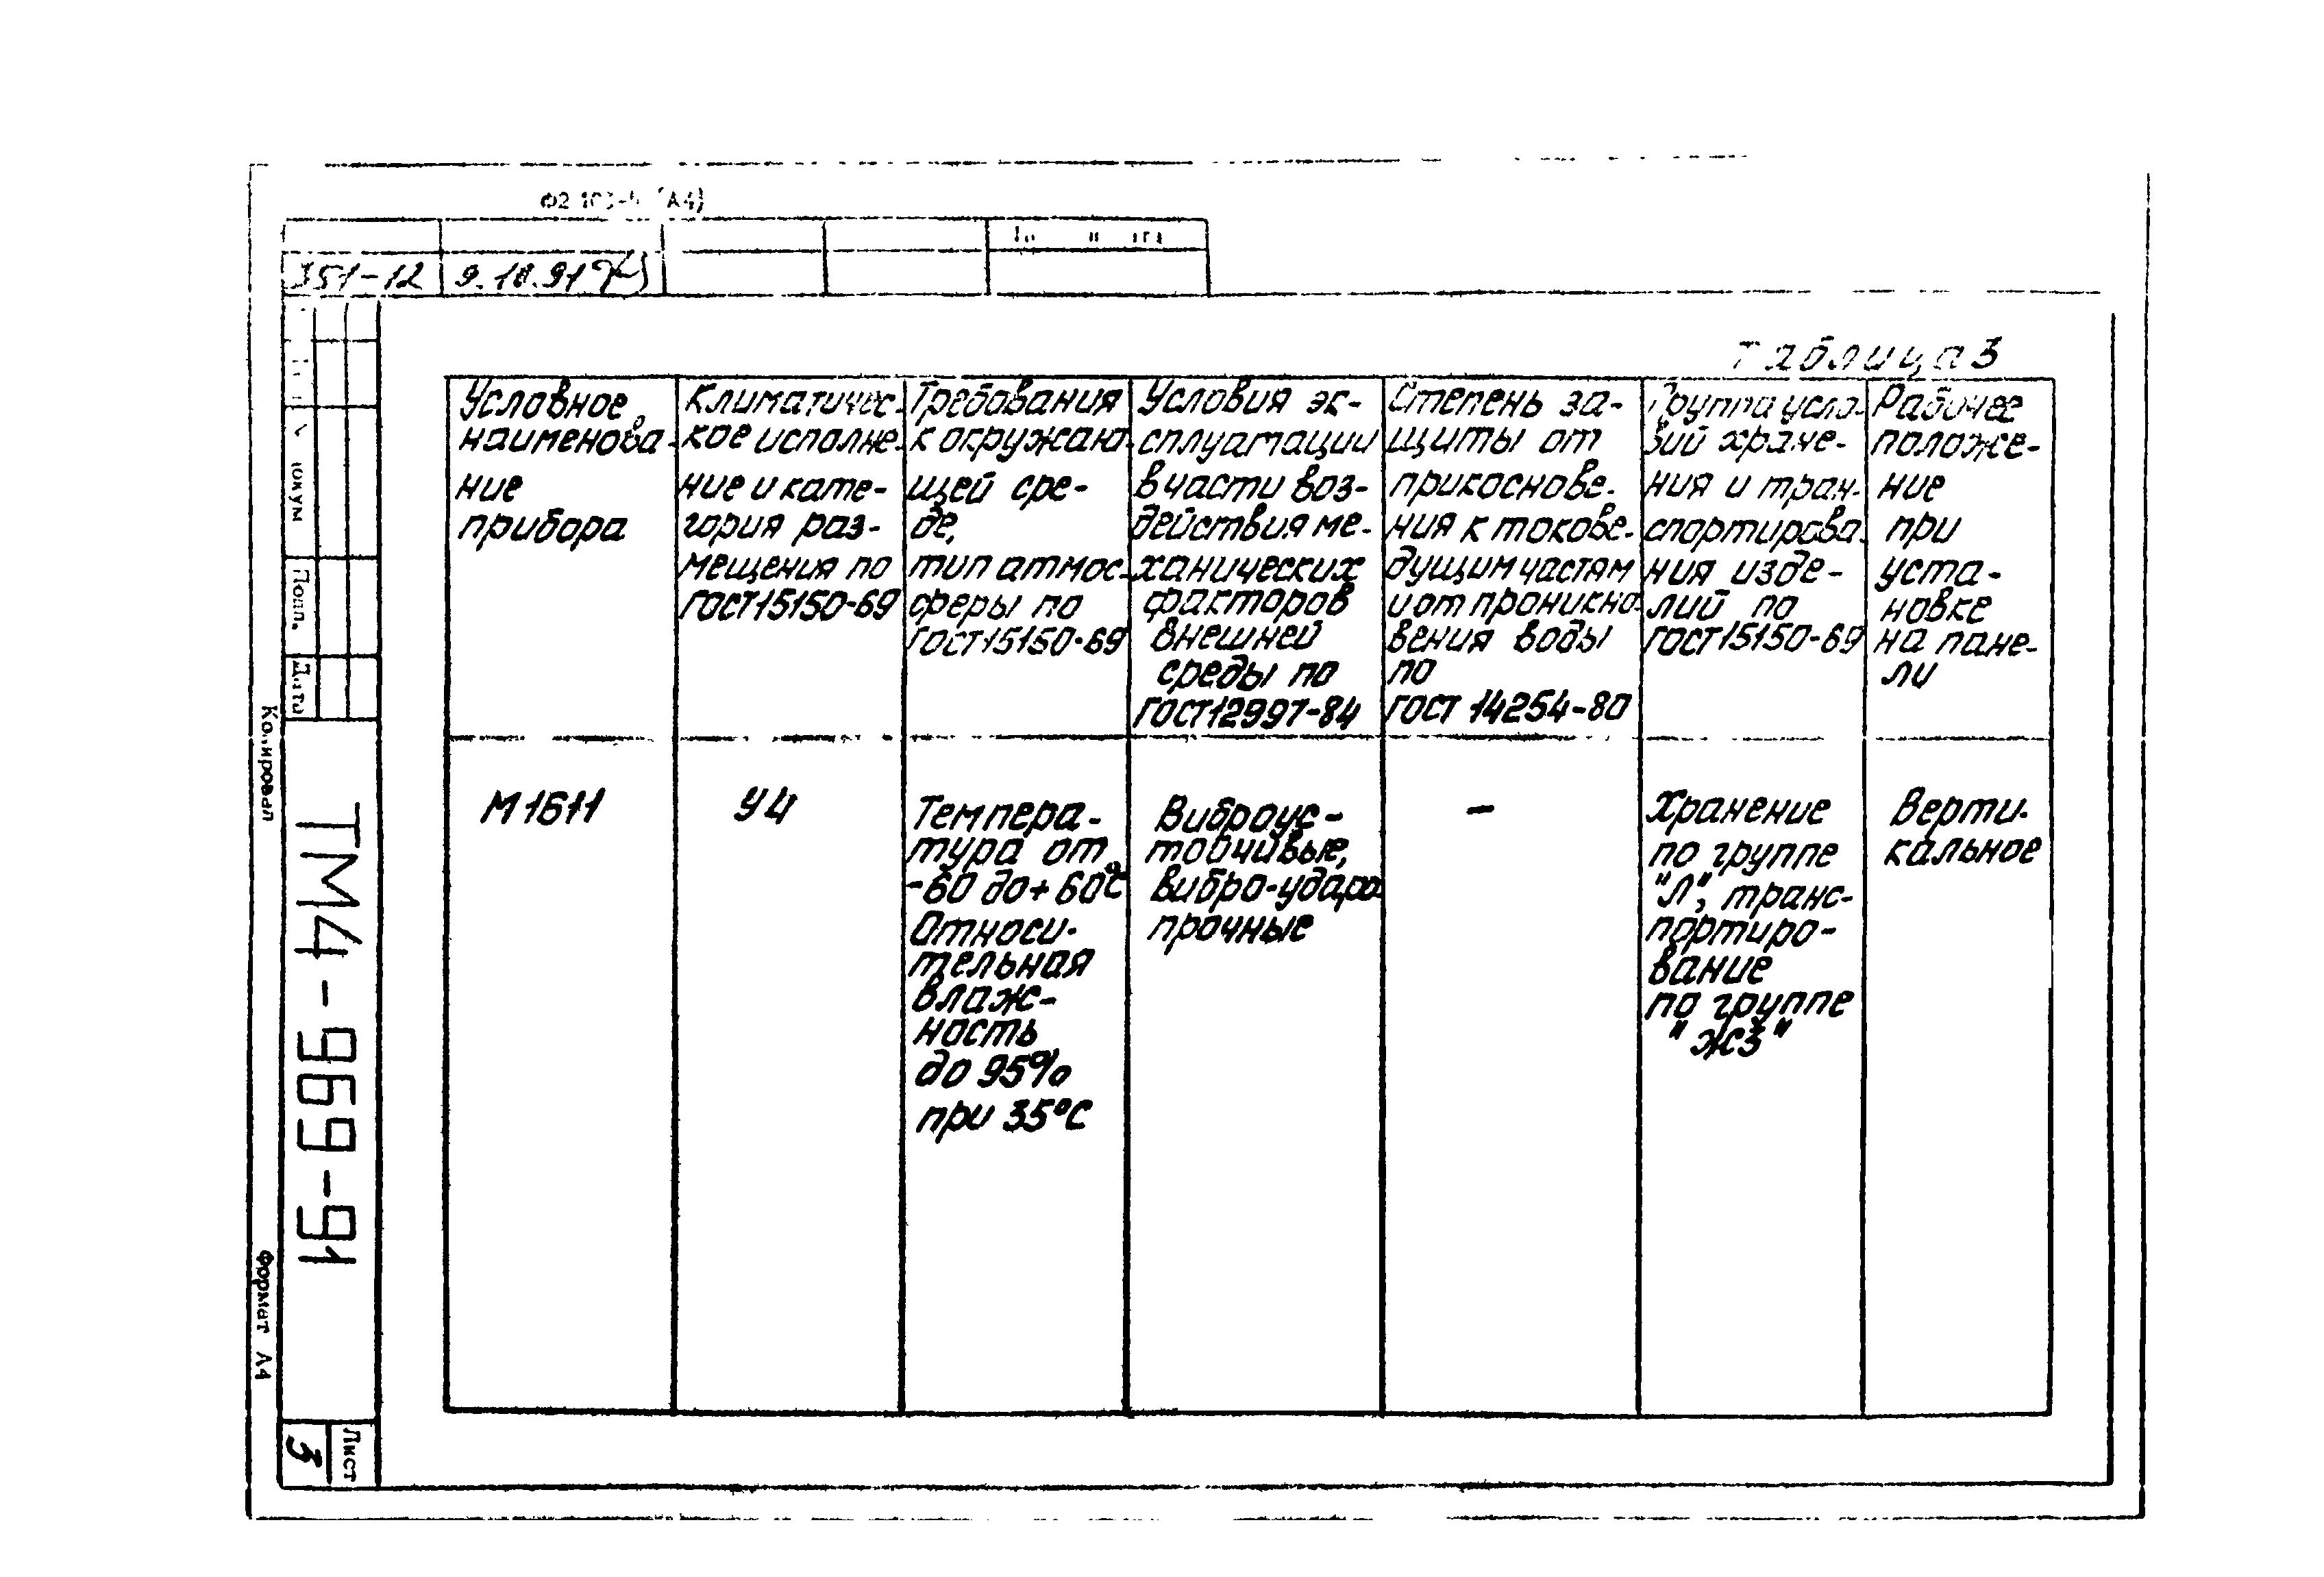 (А4)
351-12 9.10.91
Таблица 3
Условное
наименова-
ние
прибора
Климатичес-
кое исполне-
ние и кате-
гория раз-
мещения по
ГОСТ15150-69
Требования
к окружаю-
щей сре-
де,
тип атмос-
феры по
ГОСТ15150-69
Условия эк-
сплуатации
в части воз-
действия ме-
ханических
факторов
внешней
среды по
ГОСТ12997-84
Степень за-
щиты от
прикоснове-
ния к токове-
дущим частям
и от проникно-
вения воды
по
ГОСТ 14254-80
Группа усло-
вий хране-
ния и тран-
спортирова-
ния изде-
лий по
ГОСТ15150-69
Рабочее
положе-
ние
при
уста-
новке
на пане-
ли
М1611
У4
Темпера-
тура от
-60 до+60°С
Относи-
тельная
влаж-
ность
до 95%
при 35°С
Виброус-
тойчивые,
вибро-ударо-
прочные
-
Хранение
по группе
"Л", транс-
портиро-
вание
по группе
"Ж3"
Верти-
кальное
Подп.
Дата
Копировал
ТМ4-969-91
Формат А4
Лист
3